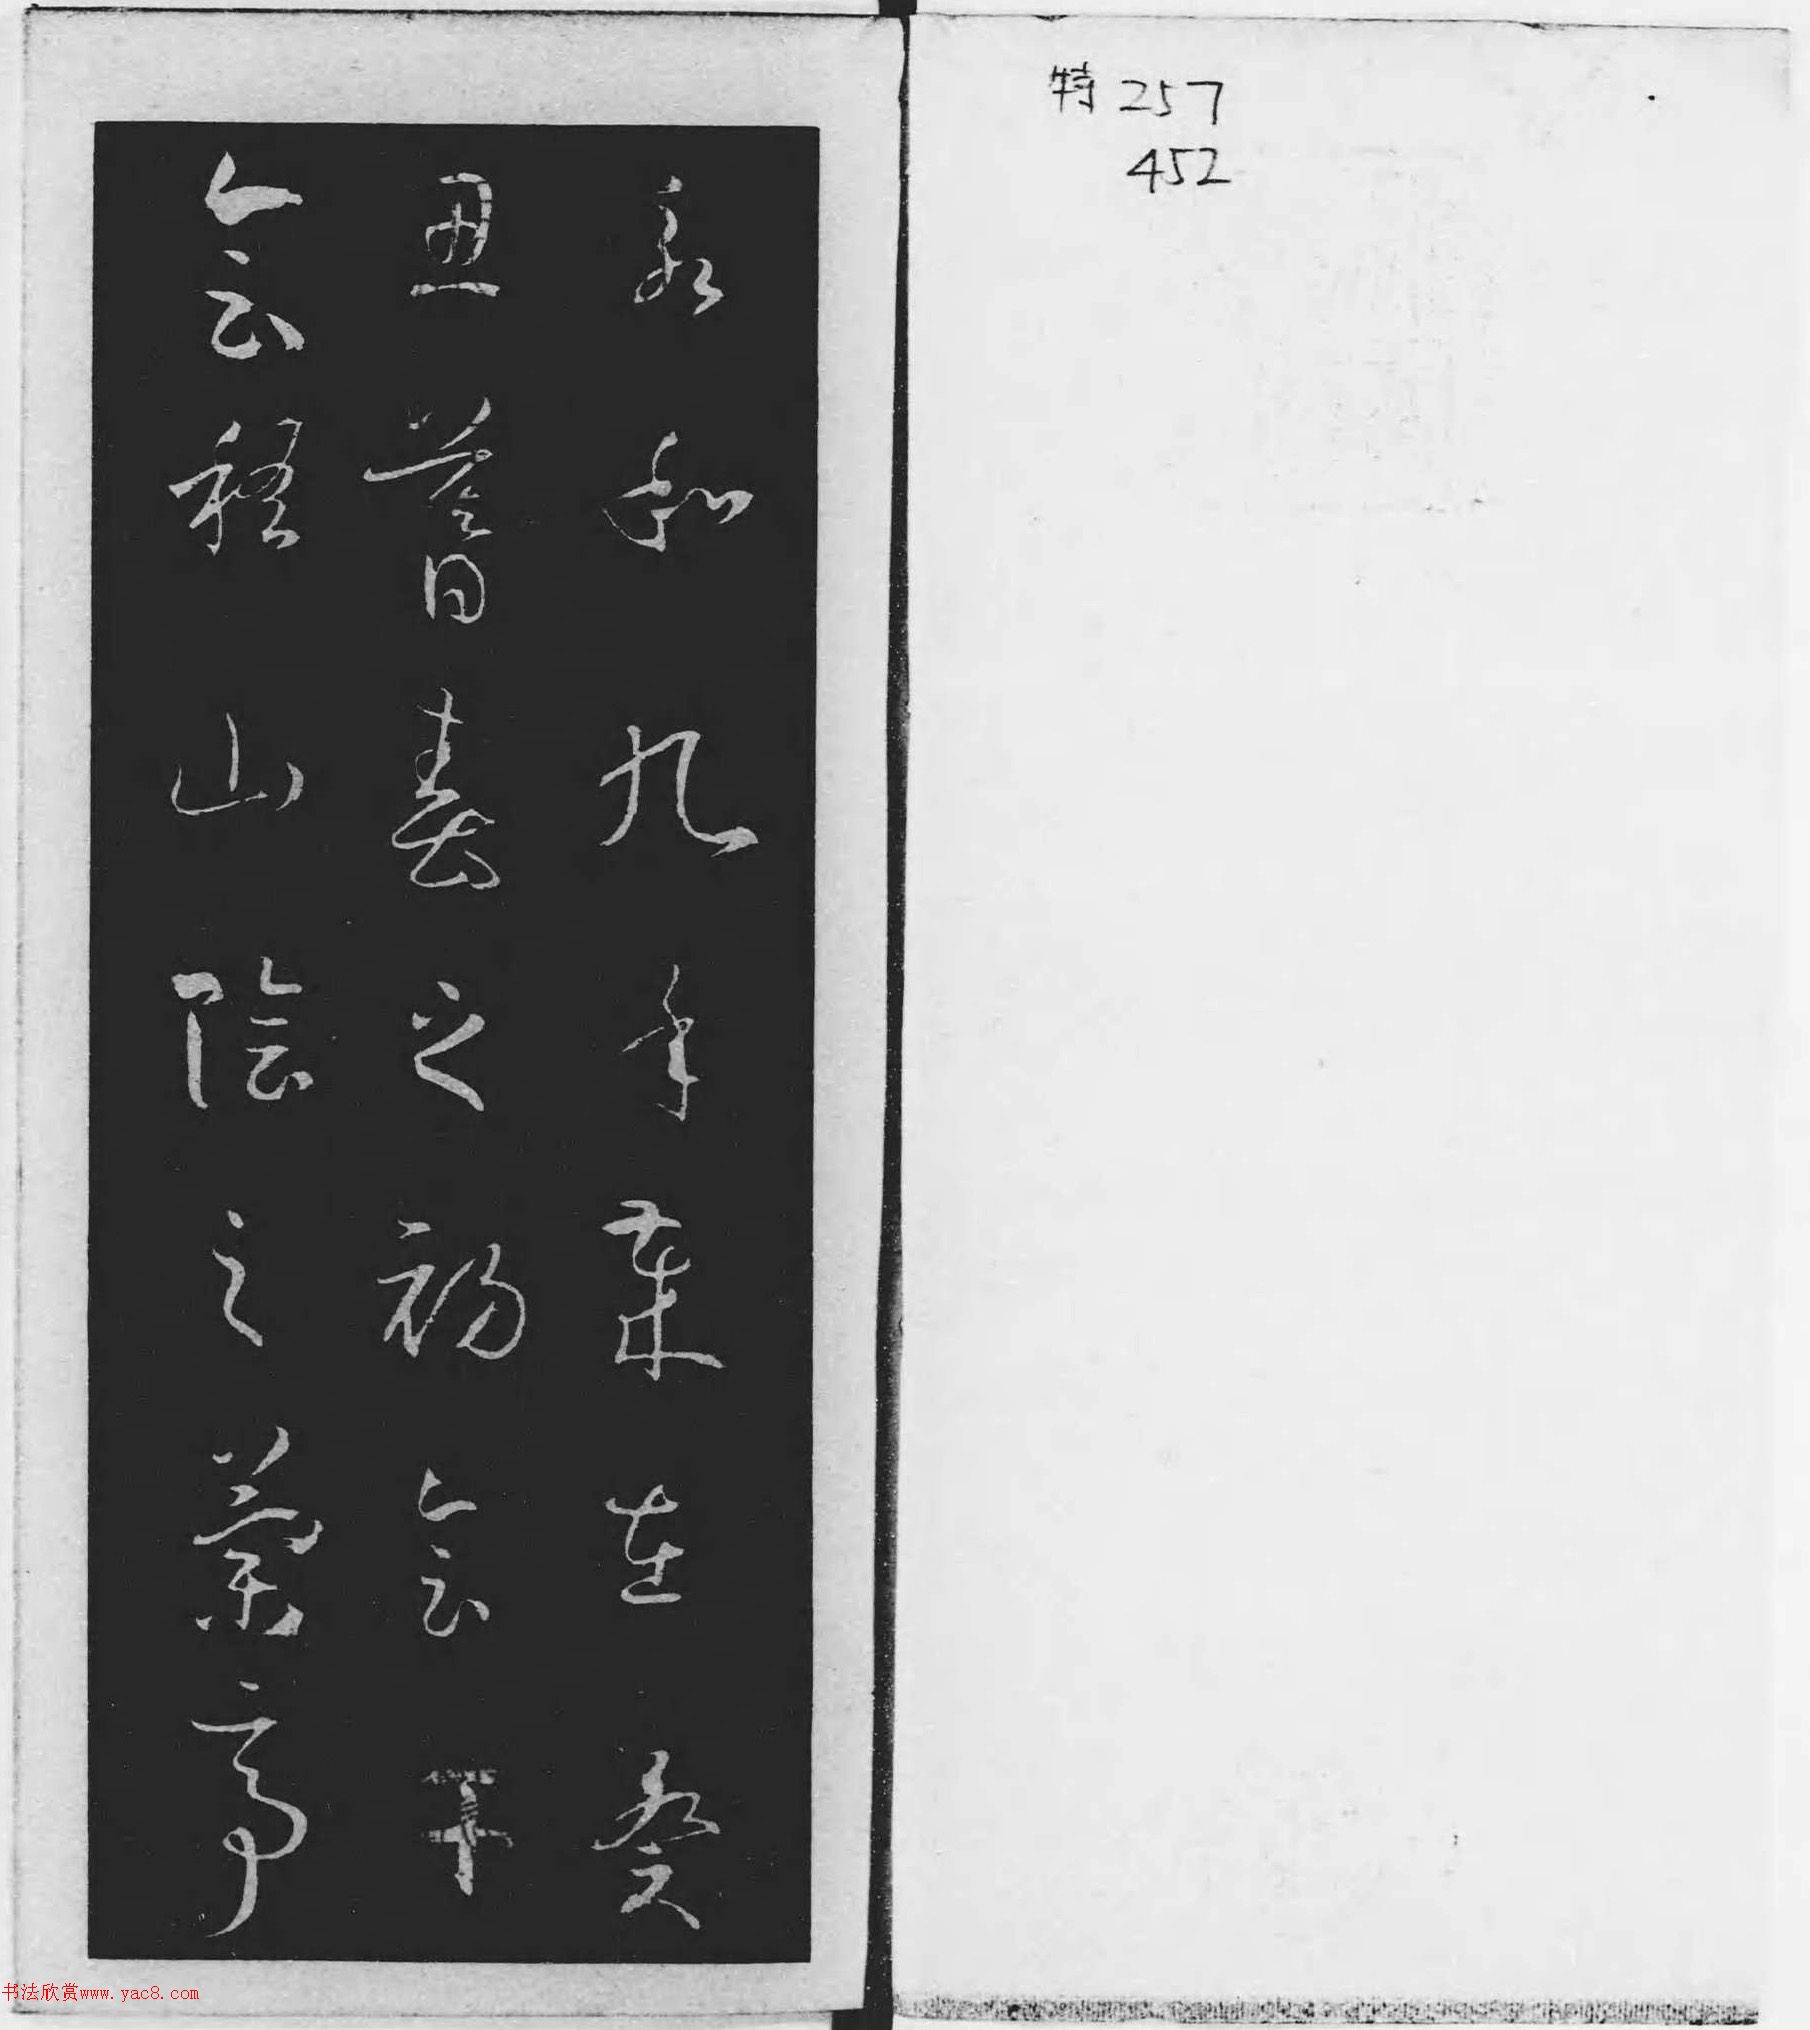 特 257
452
永和九年歲在癸
丑暮春之初會于
會稽山陰之蘭亭
书法欣赏www.yac8.com